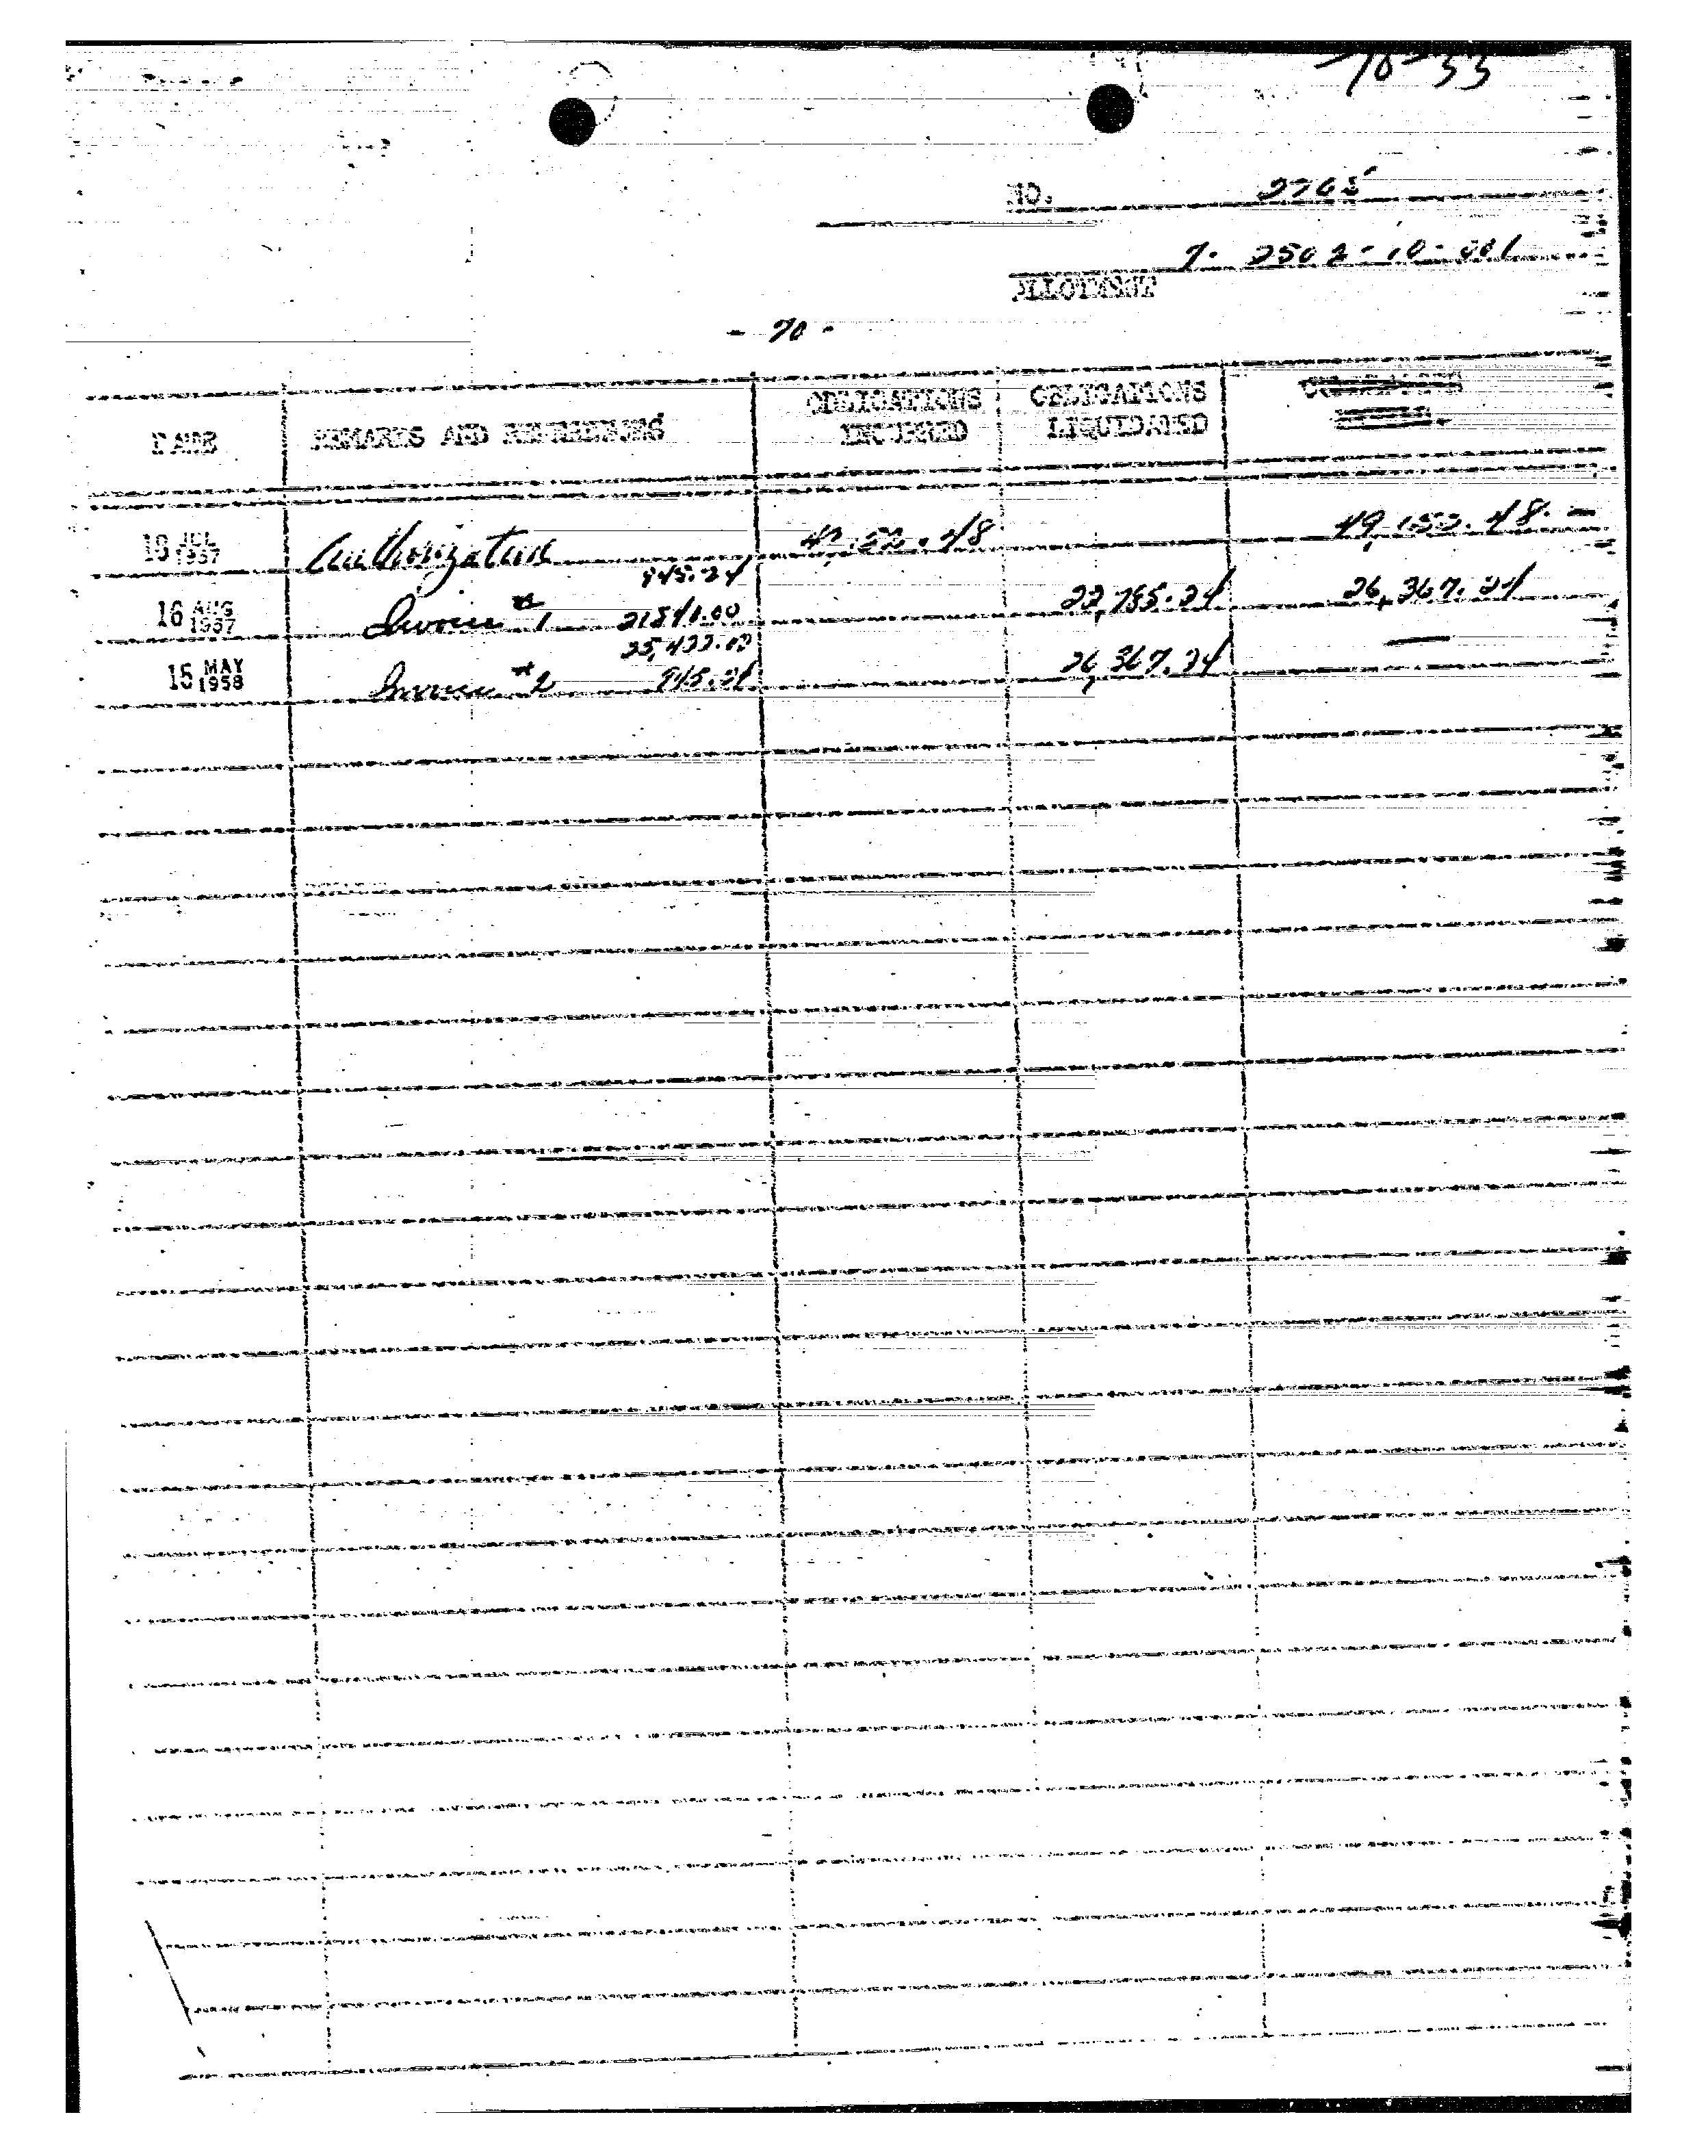 70-33
NO. 2765
7- 2502-10-001
ALLOTMENT
- 70 -
DATE REMARKS AND REFERENCES OBLIGATIONS INCURRED OBLIGATIONS LIQUIDATED
18 JUL 1957 Authorization 49,152.48 49,152.48
945.24
16 AUG 1957 Invoice #1 21840.00 22,785.24 26,367.24
25,422.00
15 MAY 1958 Invoice #2 945.24 26,367.24 —